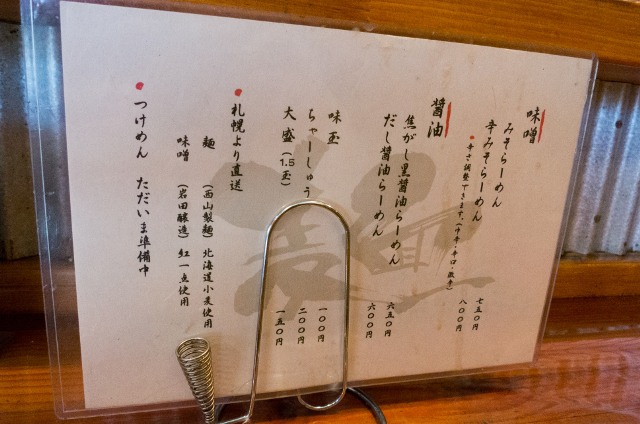 味噌
みそらーめん 七五〇円
辛みそらーめん 八〇〇円
辛さ調整できます。(中辛・辛口・激辛)
醤油
焦がし黒醤油らーめん 六五〇円
だし醤油らーめん 六〇〇円
味玉 一〇〇円
ちゃーしゅう 二〇〇円
大盛(1.5玉) 一五〇円
札幌より直送
麺 (西山製麺) 北海道小麦使用
味噌 (岩田醸造) 紅一点使用
つけめん ただいま準備中
麺